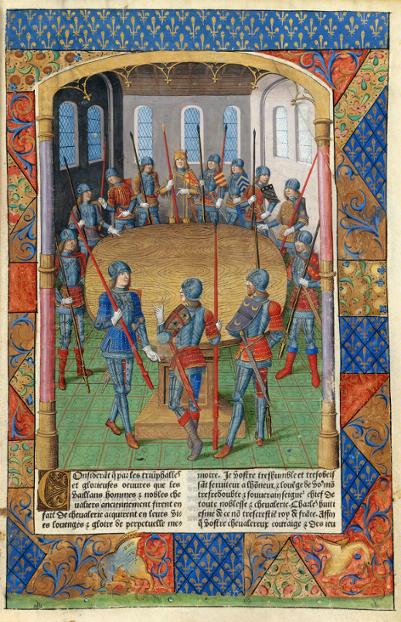 Considerāt q̄ par les triūphalles
et glorieuses oeuures que les
vaillans hommes & nobles che
ualiers anciennement firent en
fait de cheualerie acquirent en leurs vi
es louenges & gloire de perpetuelle me
moire. Je vostre treshumble et tresobeis
sāt seruiteur a
tresredoubte & souuerain seigneur chief de
toute noblesse & cheualerie. Charles huit
esme de ce nō treschrestiē roy de frāce. Affin
q̄ vostre cheualereux couraige & des ieu